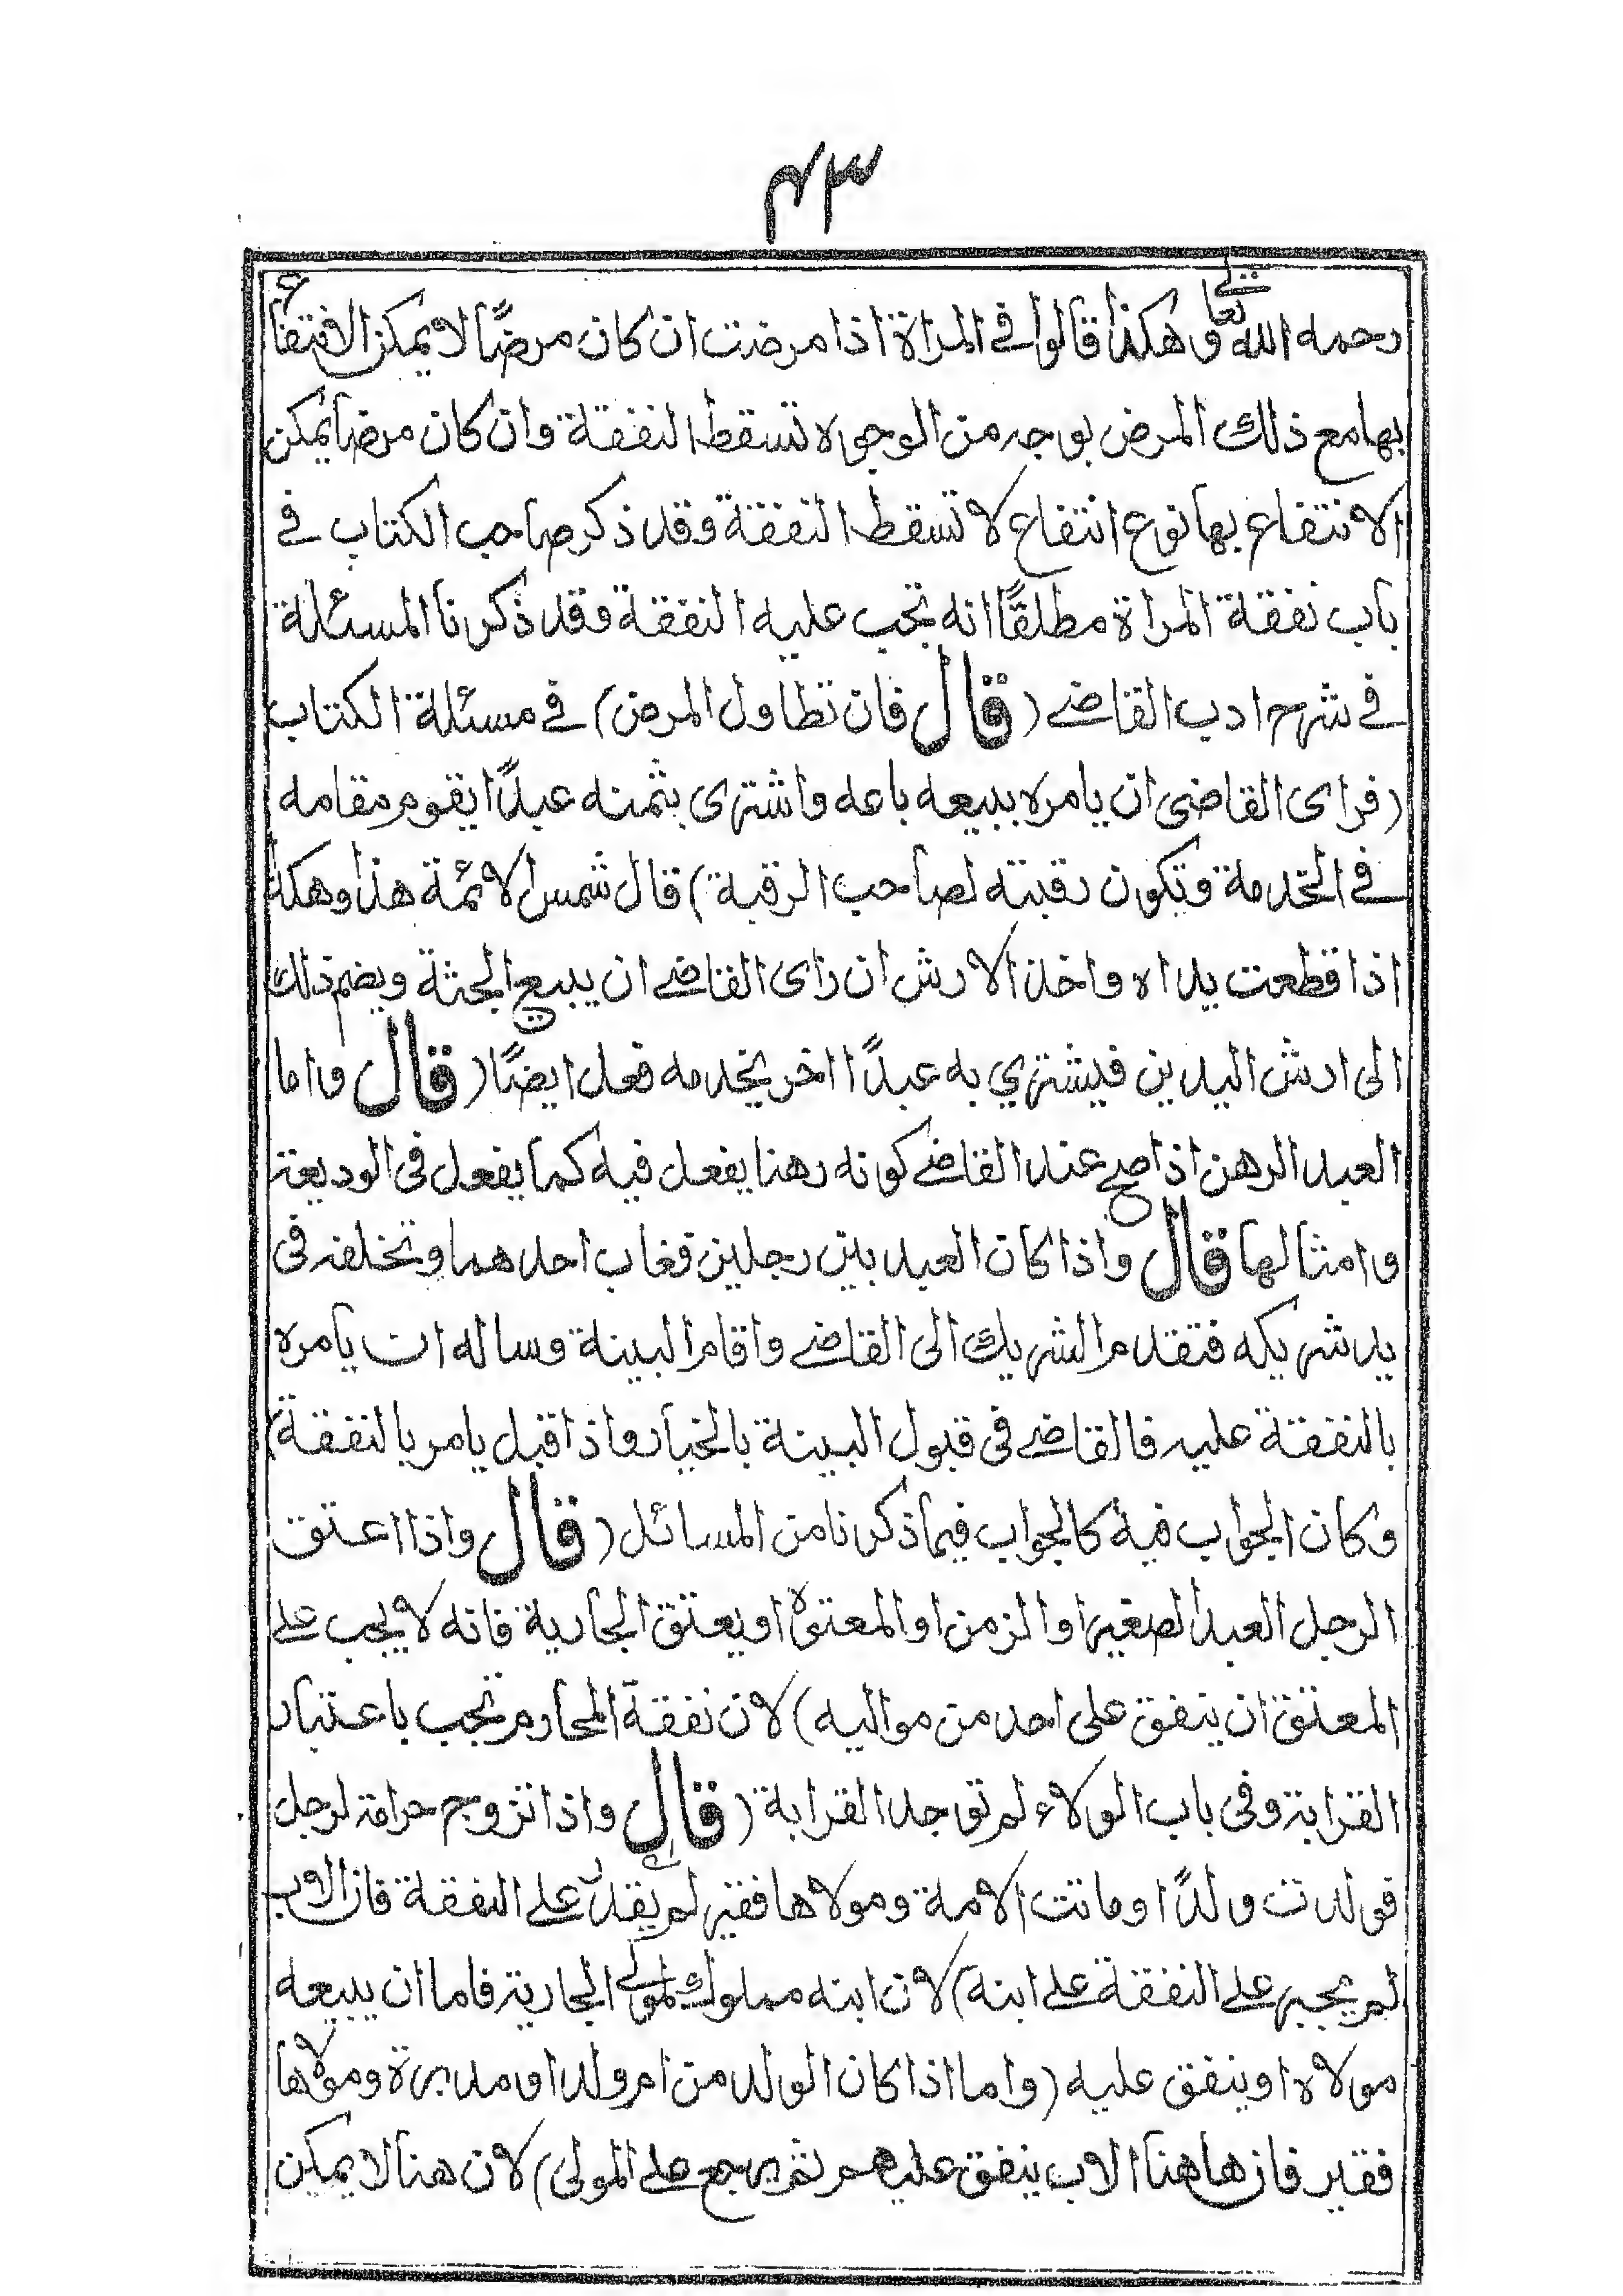 ۴۳
رحمه الله تعالى وهكذا قالوا في المرأة اذا مرضت ان كان مرضًا لا يمكن الانتفاع
بها مع ذلك المرض بوجه من الوجوه لا تسقط النفقة وان كان مرضا يمكن
الانتفاع بها نوع انتفاع لا تسقط النفقة وقد ذكر صاحب الكتاب في
باب نفقة المراة مطلقًا انه تجب عليه النفقة وقد ذكرنا المسئلة
في شرح ادب القاضي (قال فان تطاول المرض) في مسئلة الكتاب
(فراى القاضى ان يامره ببيعه باعه واشترى بثمنه عبدًا يقوم مقامه
في الخدمة وتكون رقبته لصاحب الرقبة) قال شمس الائمة هذا وهكذا
اذا قطعت يداه واخذ الارش ان راى القاضي ان يبيع الجثة ويضم ذلك
الى ارش اليدين فيشتري به عبدًا اخر يخدمه فعل ايضًا (قال واما
العبد الرهن اذا صح عند القاضي كونه رهنا يفعل فيه كما يفعل فى الوديعة
وامثالها قال واذا كان العبد بين رجلين فغاب احدهما وتخلفه فى
يد شريكه فتقدم الشريك الى القاضي واقام البينة وساله ان يامره
بالنفقة عليه فالقاضي فى قبول البينة بالخيار واذا قبل يامر بالنفقة)
وكان الجواب فيه كالجواب فيما ذكرنا من المسائل (قال واذا اعتق
الرجل العبد الصغير او الزمن او المعتوه او يعتق الجارية فانه لا يجب على
المعتق ان ينفق على احد من مواليه) لان نفقة المحارم تجب باعتبار
القرابة وفى باب الولاء لم توجد القرابة (قال واذا تزوج حر امة لرجل
فولدت ولدًا وماتت الامة ومولاها فقير لم يقدر على النفقة فان الاب
لم يجبر على النفقة على ابنه) لان ابنه مملوك لمولى الجارية فاما ان يبيعه
مولاه او ينفق عليه (واما اذا كان الولد من ام ولد او مدبرة ومولاها
فقير فان هاهنا الاب ينفق عليهم ثم يرجع على المولى) لان هنا لا يمكن